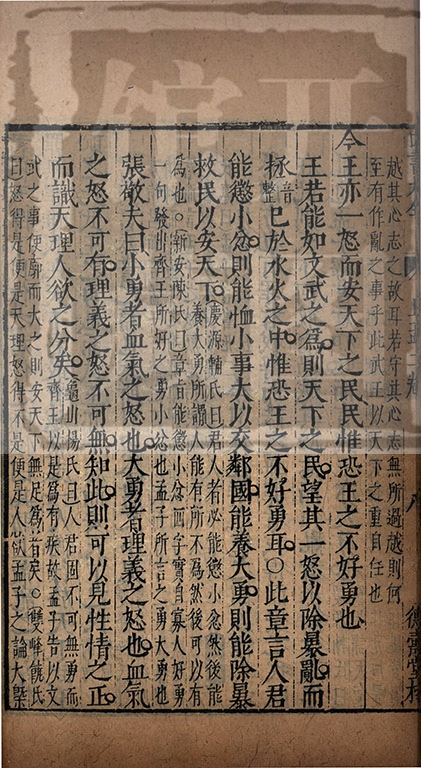 越其心志之故耳若守其心志無所過越則何
至有作亂之事乎此武王以天下之重自任也
今王亦一怒而安天下之民民惟恐王之不好勇也
王若能如文武之爲則天下之民望其一怒以除暴亂而
拯
音
整
已於水火之中惟恐王之不好勇耳○此章言人君
能懲小忿則能恤小事大以交鄰國能養大勇則能除暴
救民以安天下
慶源輔氏曰君人者必能懲小忿然後能
養大勇所謂人能有所不爲然後可以有
爲也○新安陳氏曰章旨能懲小忿四字實自寡人好勇
一句發出齊王所好之勇小忿也孟子所言之勇大勇也
張敬夫曰小勇者血氣之怒也大勇者理義之怒也血氣
之怒不可有理義之怒不可無知此則可以見性情之正
而識天理人欲之分矣
龜山楊氏曰人君固不可無勇而
齊王以是爲有疾故孟子告以文
武之事使廓而大之則安天下無足爲者矣○雙峰饒氏
曰怒得是便是天理怒得不是便是人欲孟子之論大槩